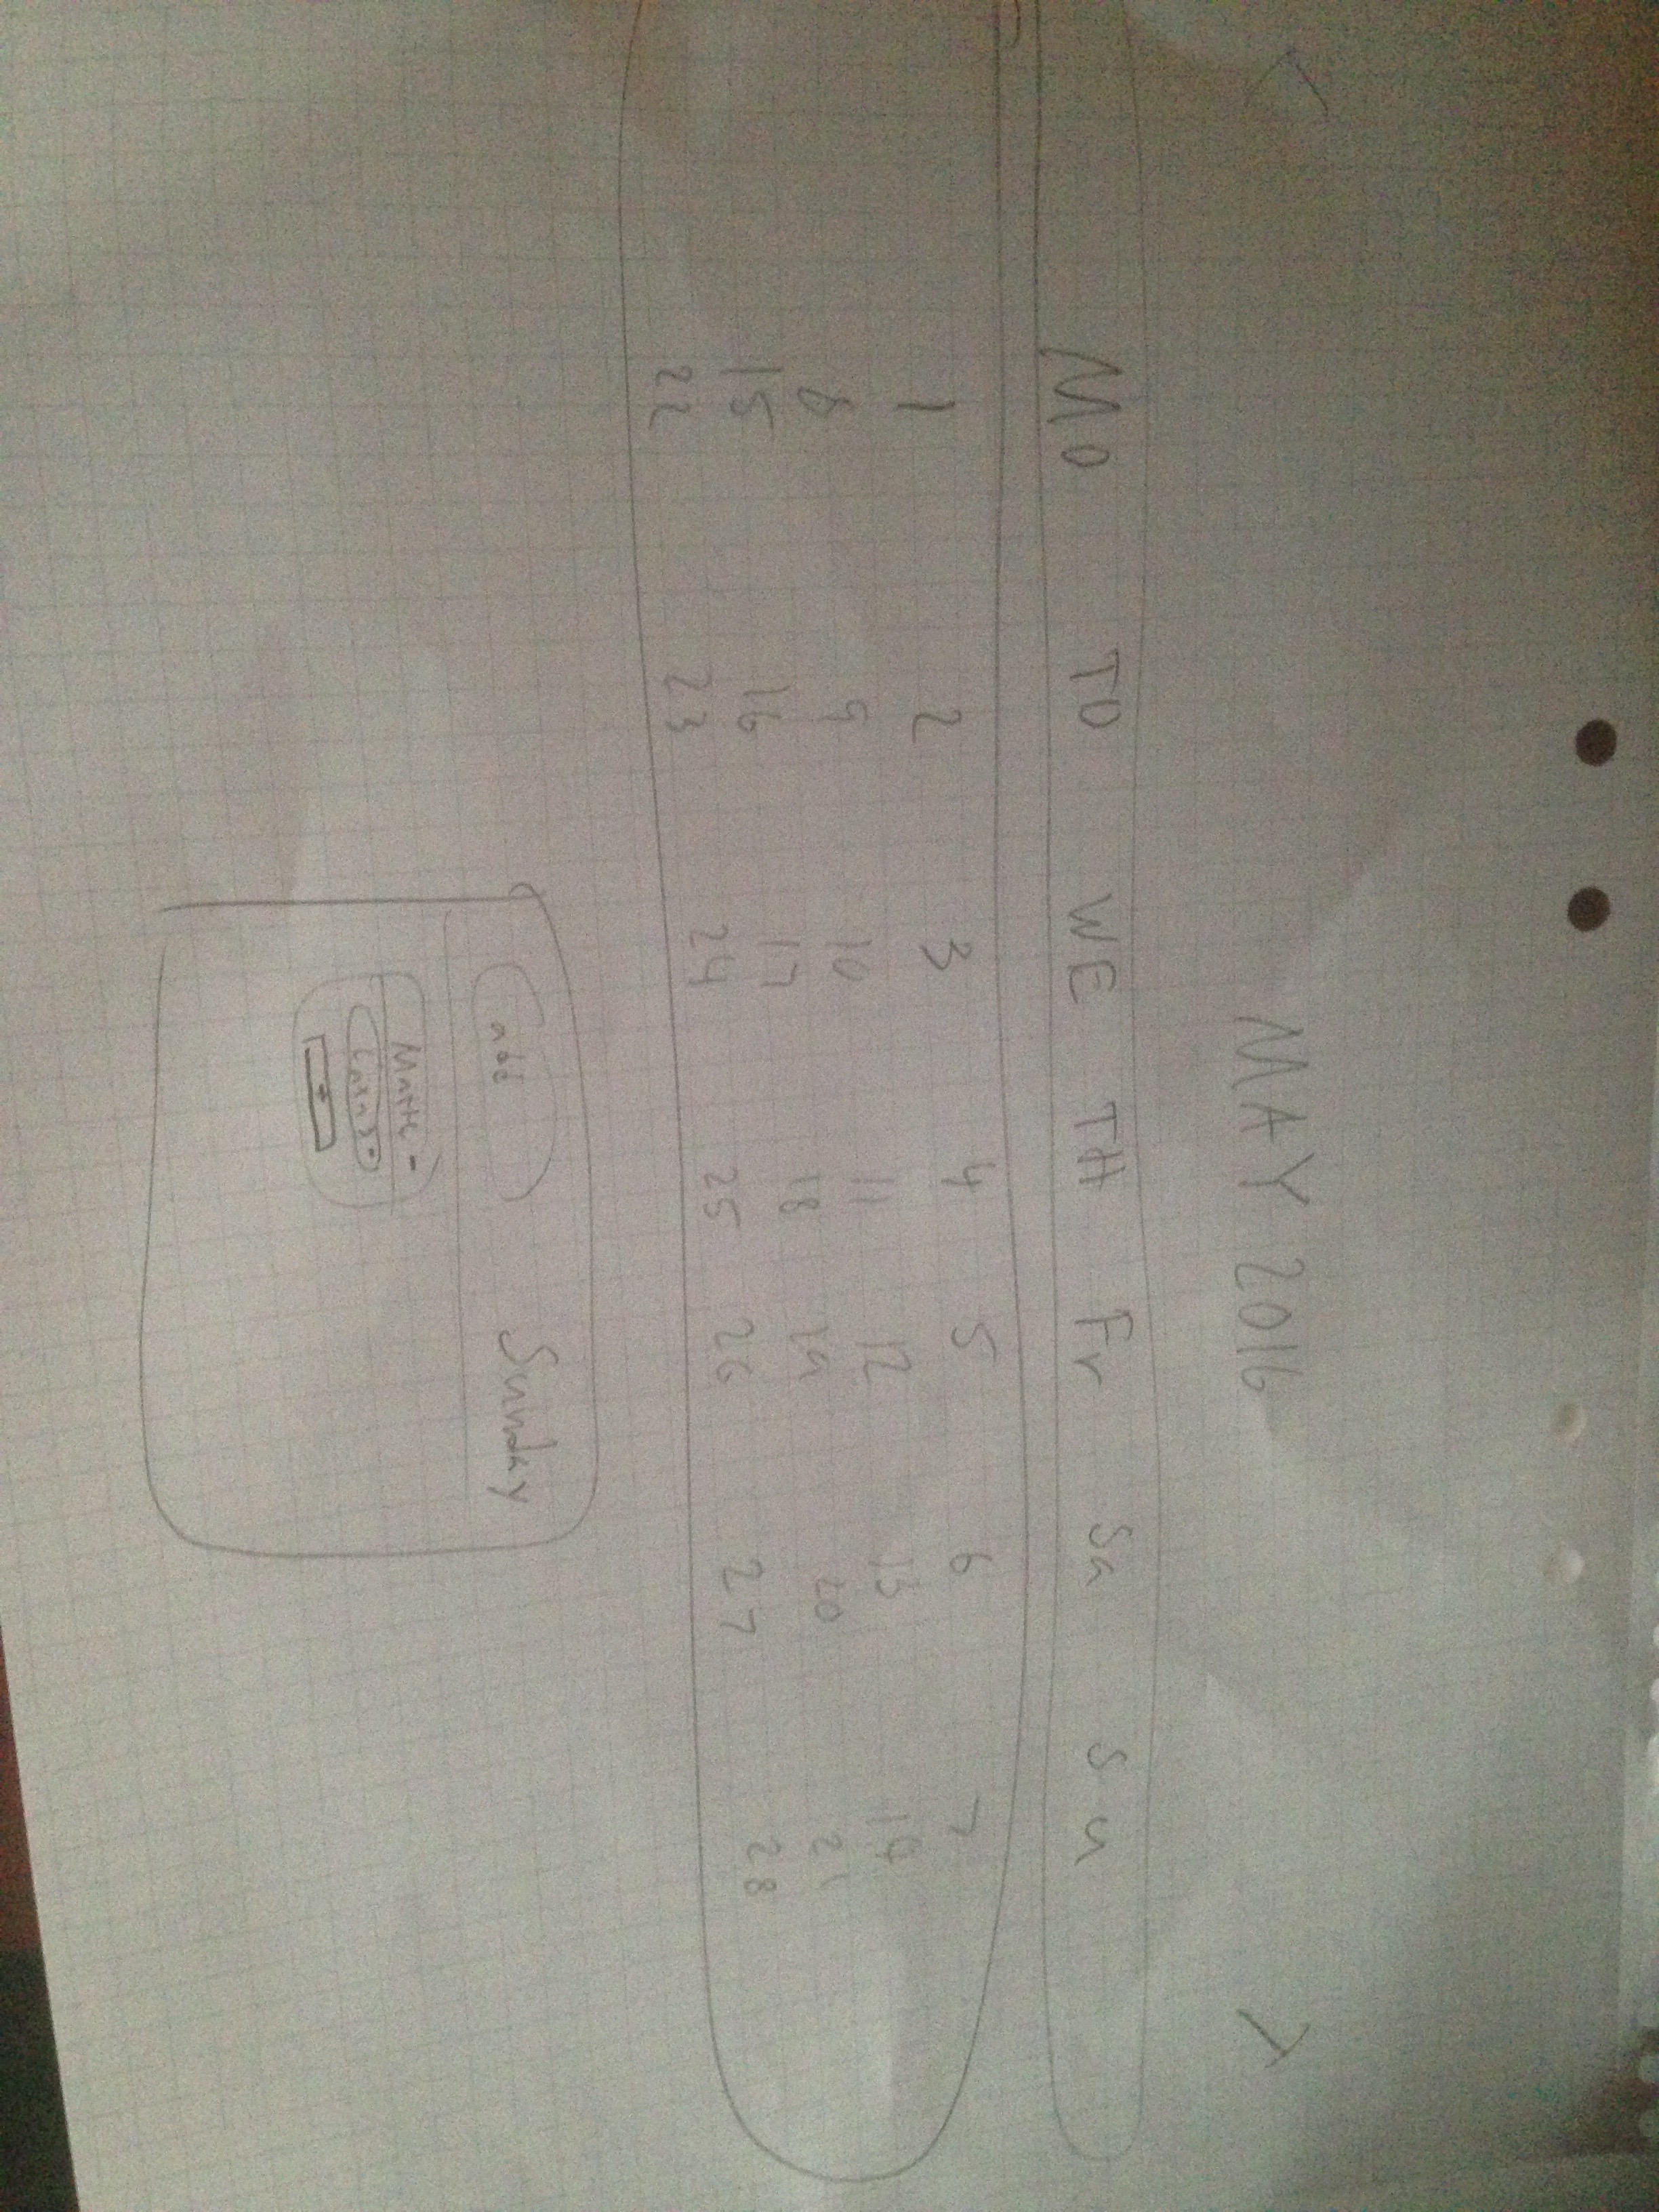 < MAY 2016 >
Mo TO WE TH Fr Sa Su
1 2 3 4 5 6 7
8 9 10 11 12 13 14
15 16 17 18 19 20 21
22 23 24 25 26 27 28
add Sunday
Mathe -
+